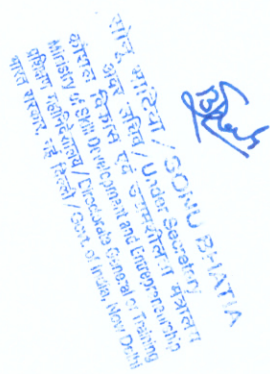 सोनू भाटिया / SONU BHATIA
अवर सचिव / Under Secretary
कौशल विकास एवं उद्यमशीलता मंत्रालय
Ministry of Skill Development and Entrepreneurship
प्रशिक्षण महानिदेशालय / Directorate General of Training
भारत सरकार, नई दिल्ली / Govt. of India, New Delhi